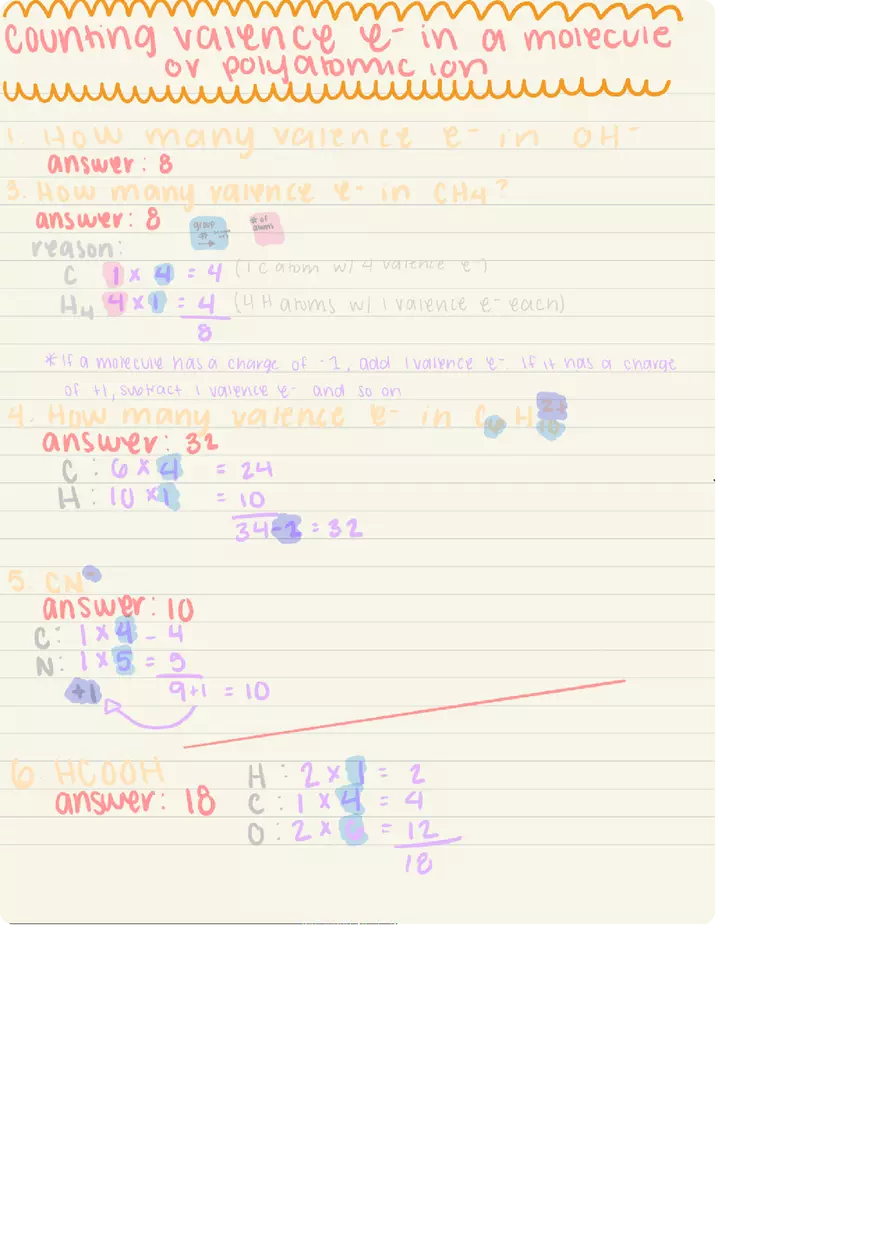 counting valence e⁻ in a molecule
or polyatomic ion
1. How many valence e⁻ in OH⁻
answer: 8
3. How many valence e⁻ in CH₄?
answer: 8
group # # of atoms
reason:
C 1 × 4 = 4 (1 C atom w/ 4 valence e⁻)
H₄ 4 × 1 = 4 (4 H atoms w/ 1 valence e⁻ each)
8
*If a molecule has a charge of -1, add 1 valence e⁻. If it has a charge
of +1, subtract 1 valence e⁻ and so on
4. How many valence e⁻ in C₆H₁₀²⁺
answer: 32
C : 6 × 4 = 24
H : 10 × 1 = 10
34-2 = 32
5. CN⁻
answer: 10
C: 1 × 4 - 4
N: 1 × 5 = 5
+1 9+1 = 10
6 HCOOH H : 2 × 1 = 2
answer: 18 C : 1 × 4 = 4
O : 2 × 6 = 12
18